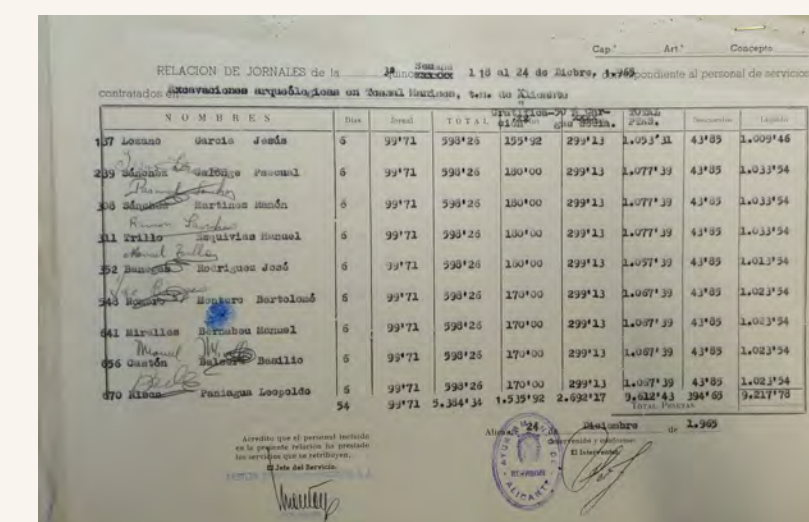 Cap.º Art.º Concepto
RELACION DE JORNALES de la Semana 18 al 24 de Dicbre, de 1965 pondiente al personal de servicios
contratados en Excavaciones arqueológicas en Tossal Manises, t.m. de Alicante
NOMBRES Días Jornal TOTAL Gratificación 50 % Cargas TOTAL PTAS. Descuentos Líquido
137 Lozano García Jesús 6 99'71 598'26 155'92 299'13 1.053'31 43'85 1.009'46
239 Sánchez Galonge Pascual 6 99'71 598'26 180'00 299'13 1.077'39 43'85 1.033'54
Pascual Sanchez
308 Sánchez Martinez Ramón 6 99'71 598'26 180'00 299'13 1.077'39 43'85 1.033'54
Ramon Sanchez
311 Trillo Esquivias Manuel 6 99'71 598'26 180'00 299'13 1.077'39 43'85 1.033'54
Manuel Trillo
352 Banegas Rodriguez José 6 99'71 598'26 160'00 299'13 1.057'39 43'85 1.013'54
548 Romero Monturo Bartolomé 6 99'71 598'26 170'00 299'13 1.067'39 43'85 1.023'54
641 Miralles Bernabeu Manuel 6 99'71 598'26 170'00 299'13 1.067'39 43'85 1.023'54
Manuel
656 Gastón Basilio 6 99'71 598'26 170'00 299'13 1.067'39 43'85 1.023'54
670 Paniagua Leopoldo 6 99'71 598'26 170'00 299'13 1.067'39 43'85 1.023'54
54 99'71 5.384'34 1.535'92 2.692'17 9.612'43 394'65 9.217'78
TOTAL PESETAS
Alicante 24 de Diciembre de 1.965
Acredito que el personal incluido
en la presente relación ha prestado
los servicios que se retribuyen.
El Jefe del Servicio,
Intervenido y conforme:
El Interventor,
AYUNTAMIENTO DE ALICANTE